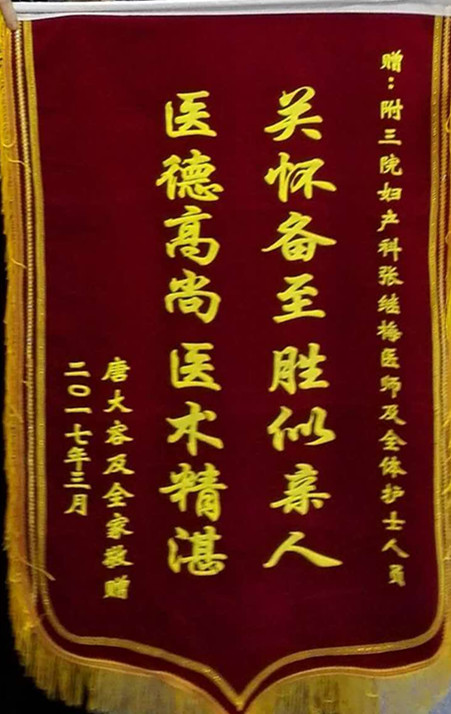 赠：附三院妇产科张继梅医师及全体护士人员
关怀备至 胜似亲人
医德高尚 医术精湛
唐大容及全家敬赠
二〇一七年三月